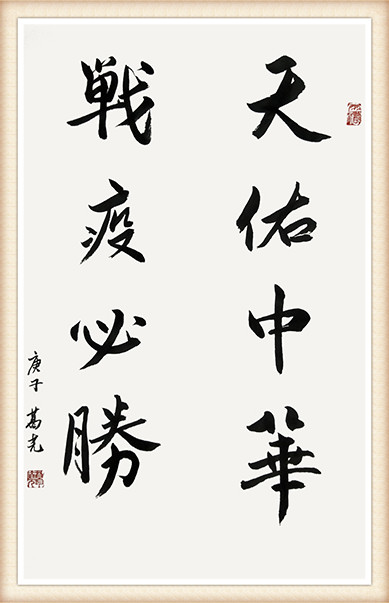 天佑中華
戦疫必勝
庚子